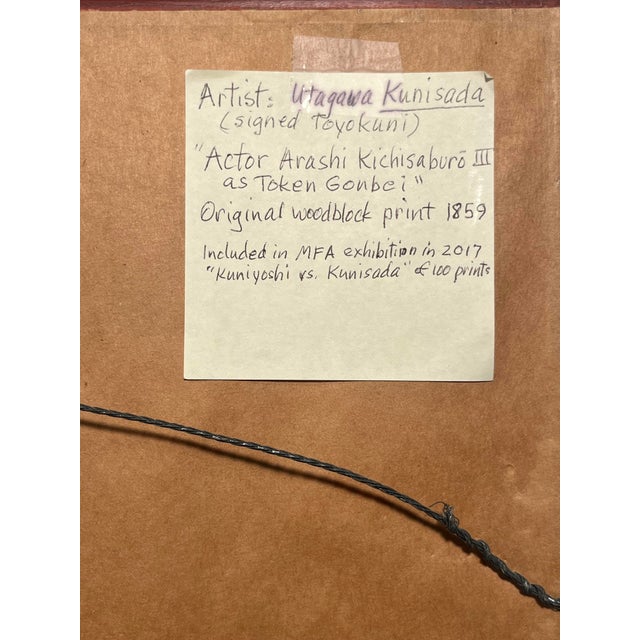 Artist: Utagawa Kunisada
(signed Toyokuni)
"Actor Arashi Kichisaburō III
as Token Gonbei"
Original woodblock print 1859
Included in MFA exhibition in 2017
"Kuniyoshi vs. Kunisada" of 100 prints